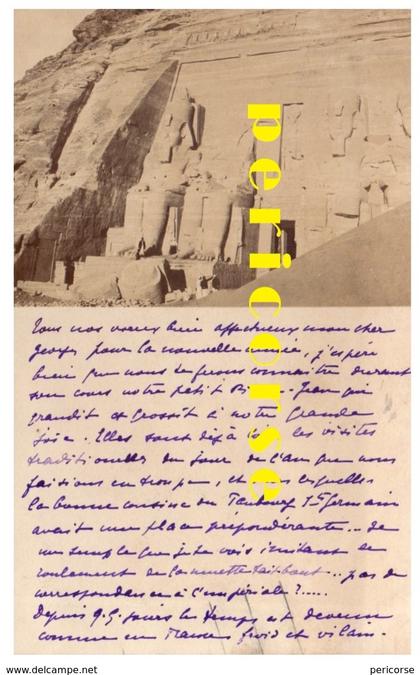 pericorse
Tous nos voeux bien affectueux mon cher
Georges pour la nouvelle année, j'espère
bien que nous te ferons connaitre durant
son cours notre petit Jean qui
grandit et grossit à notre grande
joie. Elles sont déjà les visites
traditionelles du jour de l'an que nous
faisions en troupe, et lesquelles
la bonne cousine du Faubourg St Germain
avait une place prépondérante... de
me semble que je te vois imitant le
roulement de la .. pas de
correspondance à l'impériale ?.....
Depuis q.q. jours le temps est devenu
comme en France froid et vilain.
pericorse